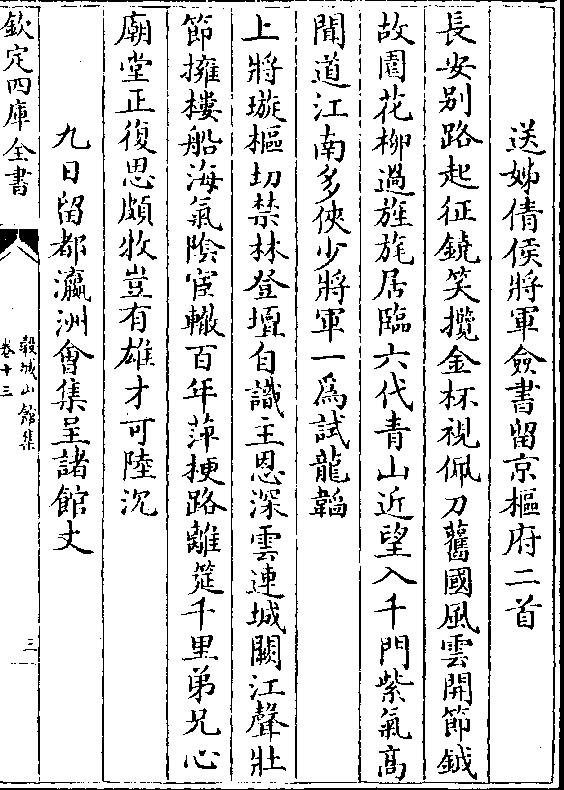 送姊倩侯將軍僉書留京樞府二首
長安别路起征鐃笑攬金杯視佩刀舊國風雲開節鉞
故園花柳過旌旄居臨六代青山近望入千門紫氣高
聞道江南多俠少將軍一為試龍韜
上將璇樞切禁林登壇自識主恩深雲連城闕江聲壯
節擁樓船海氣陰宦轍百年萍梗路離筵千里弟兄心
廟堂正復思頗牧豈有雄才可陸沉
九日留都瀛洲會集呈諸館丈
欽定四庫全書
穀城山館集
卷十三
三